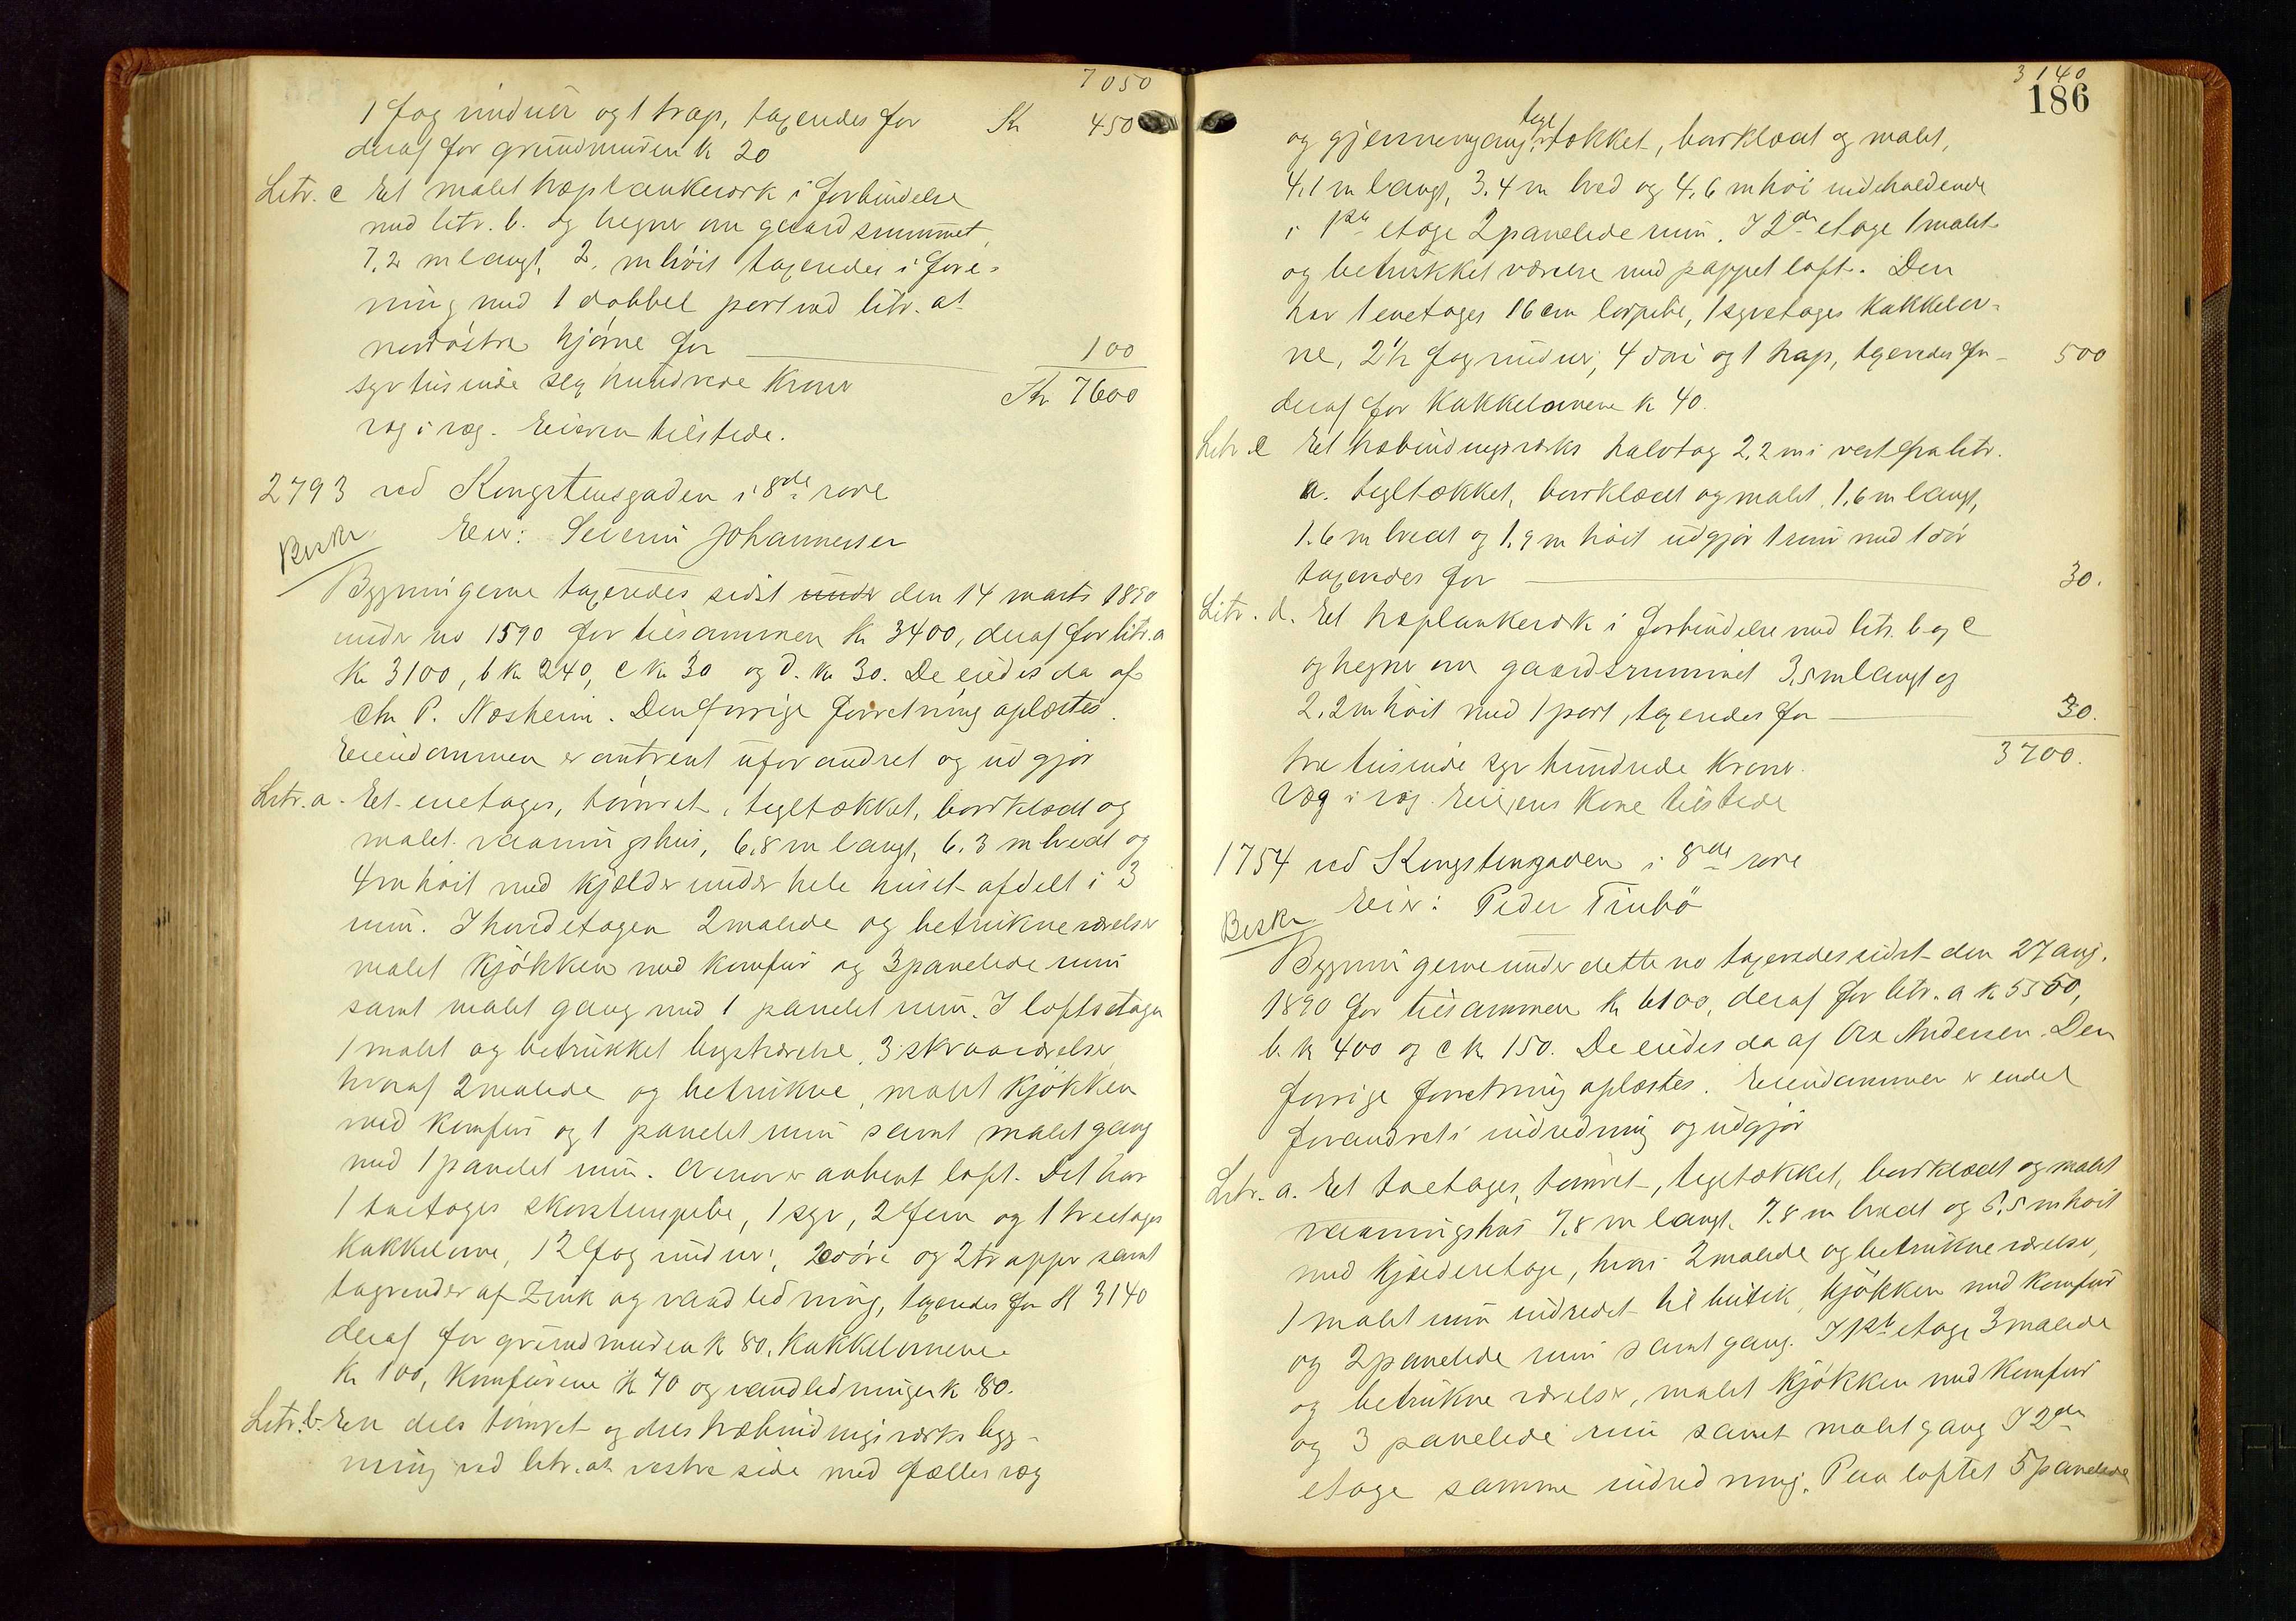 7050
1 fag vinduer og 1 trap, taxeredes for Kr 450
deraf for grundmuren k 20
Litr. c Et malet træplankeværk i forbindelse
med litr. b. og hegner om gaardsrummet,
7,2 m langt, 2, m høit taxeredes i fore-
ning med 1 dobbel port ved litr. a's
nordøstre hjørne for 100
syv tusinde sex hundrede Kroner Kr 7600
væg i væg. Eieren tilstede.
2793 ved Kongstensgaden i 8de rode
Beskr. Eier: Severin Johannessen
Bygningerne taxeredes sidst under den 14 marts 1890
under no 1590 for tilsammen Kr 3400, deraf for litr. a
Kr 3100, b k 240, c k 30 og d. kr 30. De eiedes da af
Chr P. Næsheim. Den forrige forretning oplæstes.
Eiendommen er omtrent uforandret og udgjør
Litr. a. Et enetages, tømret, tegltækket, bordklædt og
malet vaaningshus, 6,8 m langt, 6.3 m bredt og
4 m høit med kjælder under hele huset afdelt i 3
rum. I hovedetagen 2 malede og betrukne værelser
malet kjøkken med komfur og 3 panelede rum
samt malet gang med 1 panelet rum. I loftsetagen
1 malet og betrukket kvistværelse, 3 skraaværelser
hvoraf 2 malede og betrukne, malet kjøkken
med komfur og 1 panelet rum samt malet gang
med 1 panelet rum. Ovenover aabent loft. Det har
1 toetages skorstenspibe, 1 syv, 2 fem og 1 treetages
kakkelovne, 12 fag vinduer, 20 døre og 2 trapper samt
tagrender af Zink og vandledning, taxeredes for K 3140
deraf for grundmuren k 80, kakkelovnene
Kr 100, komfurene K 70 og vandledningen k 80.
Litr. b. En dels tømret og dels træbindingsværks byg-
ning ved litr. a's vestre side med fælles væg
3140
186
og gjennemgang, tegltækket, bordklædt og malet,
4,1 m langt, 3.4 m bred og 4,6 m høi indeholdende
i 1ste etage 2 panelede rum. I 2den etage 1 malet
og betrukket værelse med pappet loft. Den
har 1 enetages 16 cm lerpibe, 1 syvetages kakkelov-
ne, 2½ fag vinduer, 4 døre og 1 trap, taxeredes for 500
deraf for kakkelovnene k 40.
Litr. c Et træbindingsværks halvtag 2,2 m i vest fra litr.
a. tegltækket, bordklædt og malet, 1,6 m langt,
1.6 m bredt og 1.9 m høit udgjør 1 rum med 1 dør
taxeredes for 30.
Litr. d. Et træplankeværk i forbindelse med litr. b og c
og hegner om gaardsrummet 3,5 m langt og
2.2 m høit med 1 port, taxeredes for 30.
tre tusinde syv hundrede Kroner. 3700.
væg i væg. Eierens Kone tilstede
1754 ved Kongstensgaden i 8de rode
Beskr Eier: Peder Tinbö
Bygningerne under dette no taxeredes sidst den 27 aug.
1890 for tilsammen K 6100, deraf for litr. a k 5550,
b. k 400 og c k. 150. De eiedes da af Andersen. Den
forrige forretning oplæstes. Eiendommen er endel
forandret i indredning og udgjør
Litr. a. Et toetages, tømret, tegltækket, bordklædt og malet
vaaningshus 7,8 m langt, 7.8 m bredt og 6,5 m høit
med kjælderetage, hvori 2 malede og betrukne værelser,
1 malet rum indredet til butik, kjøkken med komfur
og 2 panelede rum samt gang. I 1ste etage 3 malede
og betrukne værelser, malet kjøkken med komfur
og 3 panelede rum samt malet gang I 2den
etage samme indredning. Paa loftet 5 panelede